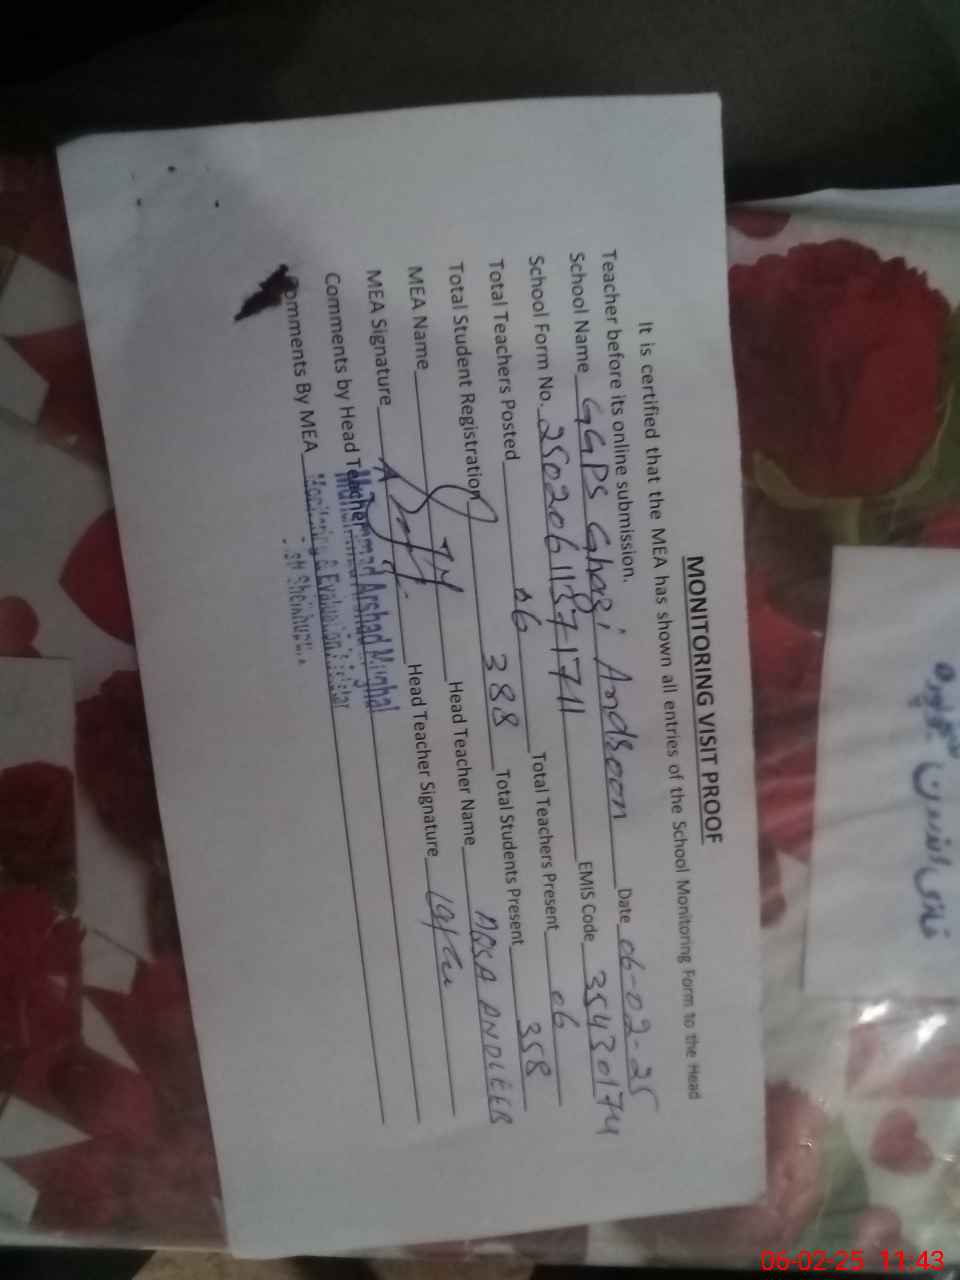 MONITORING VISIT PROOF
It is certified that the MEA has shown all entries of the School Monitoring Form to the Head
Teacher before its online submission.
School Name GGPS Ghazi Andsoon Date 06-02-25
School Form No. EMIS Code 35430174
Total Teachers Posted 06 Total Teachers Present 06
Total Student Registration 388 Total Students Present 358
MEA Name Head Teacher Name ANDLEEB
MEA Signature Head Teacher Signature
Comments by Head Teacher
Muhammad Arshad Mughal
Comments By MEA
Monitoring & Evaluation
Distt Sheikhupura
غازی اندرون
06-02-25 11:43